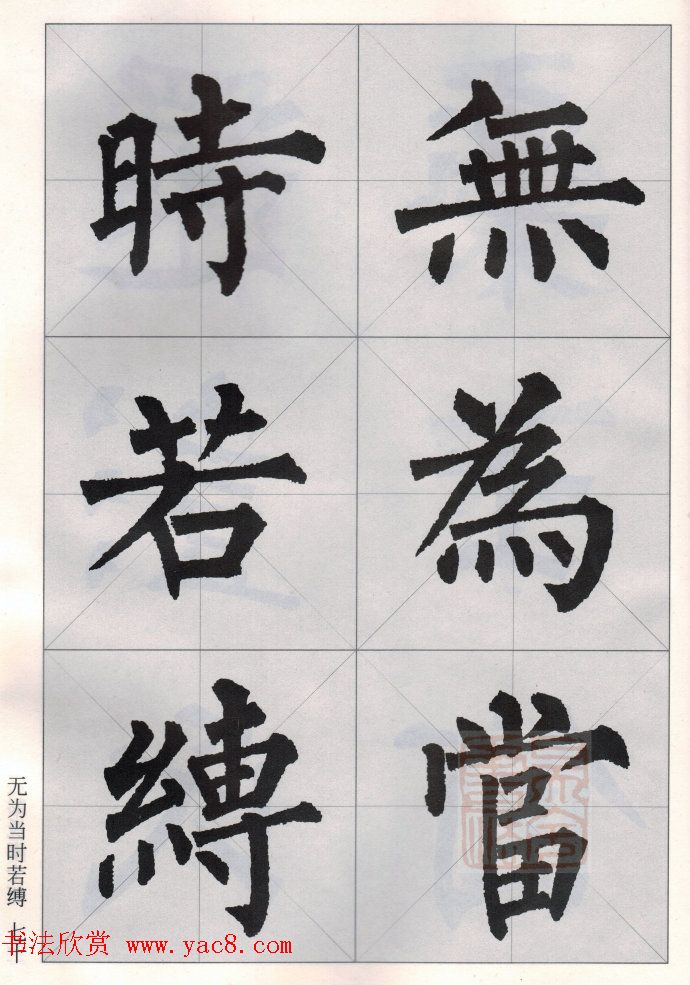 無為當
時若縛
无为当时若缚 七十
书法欣赏 www.yac8.com